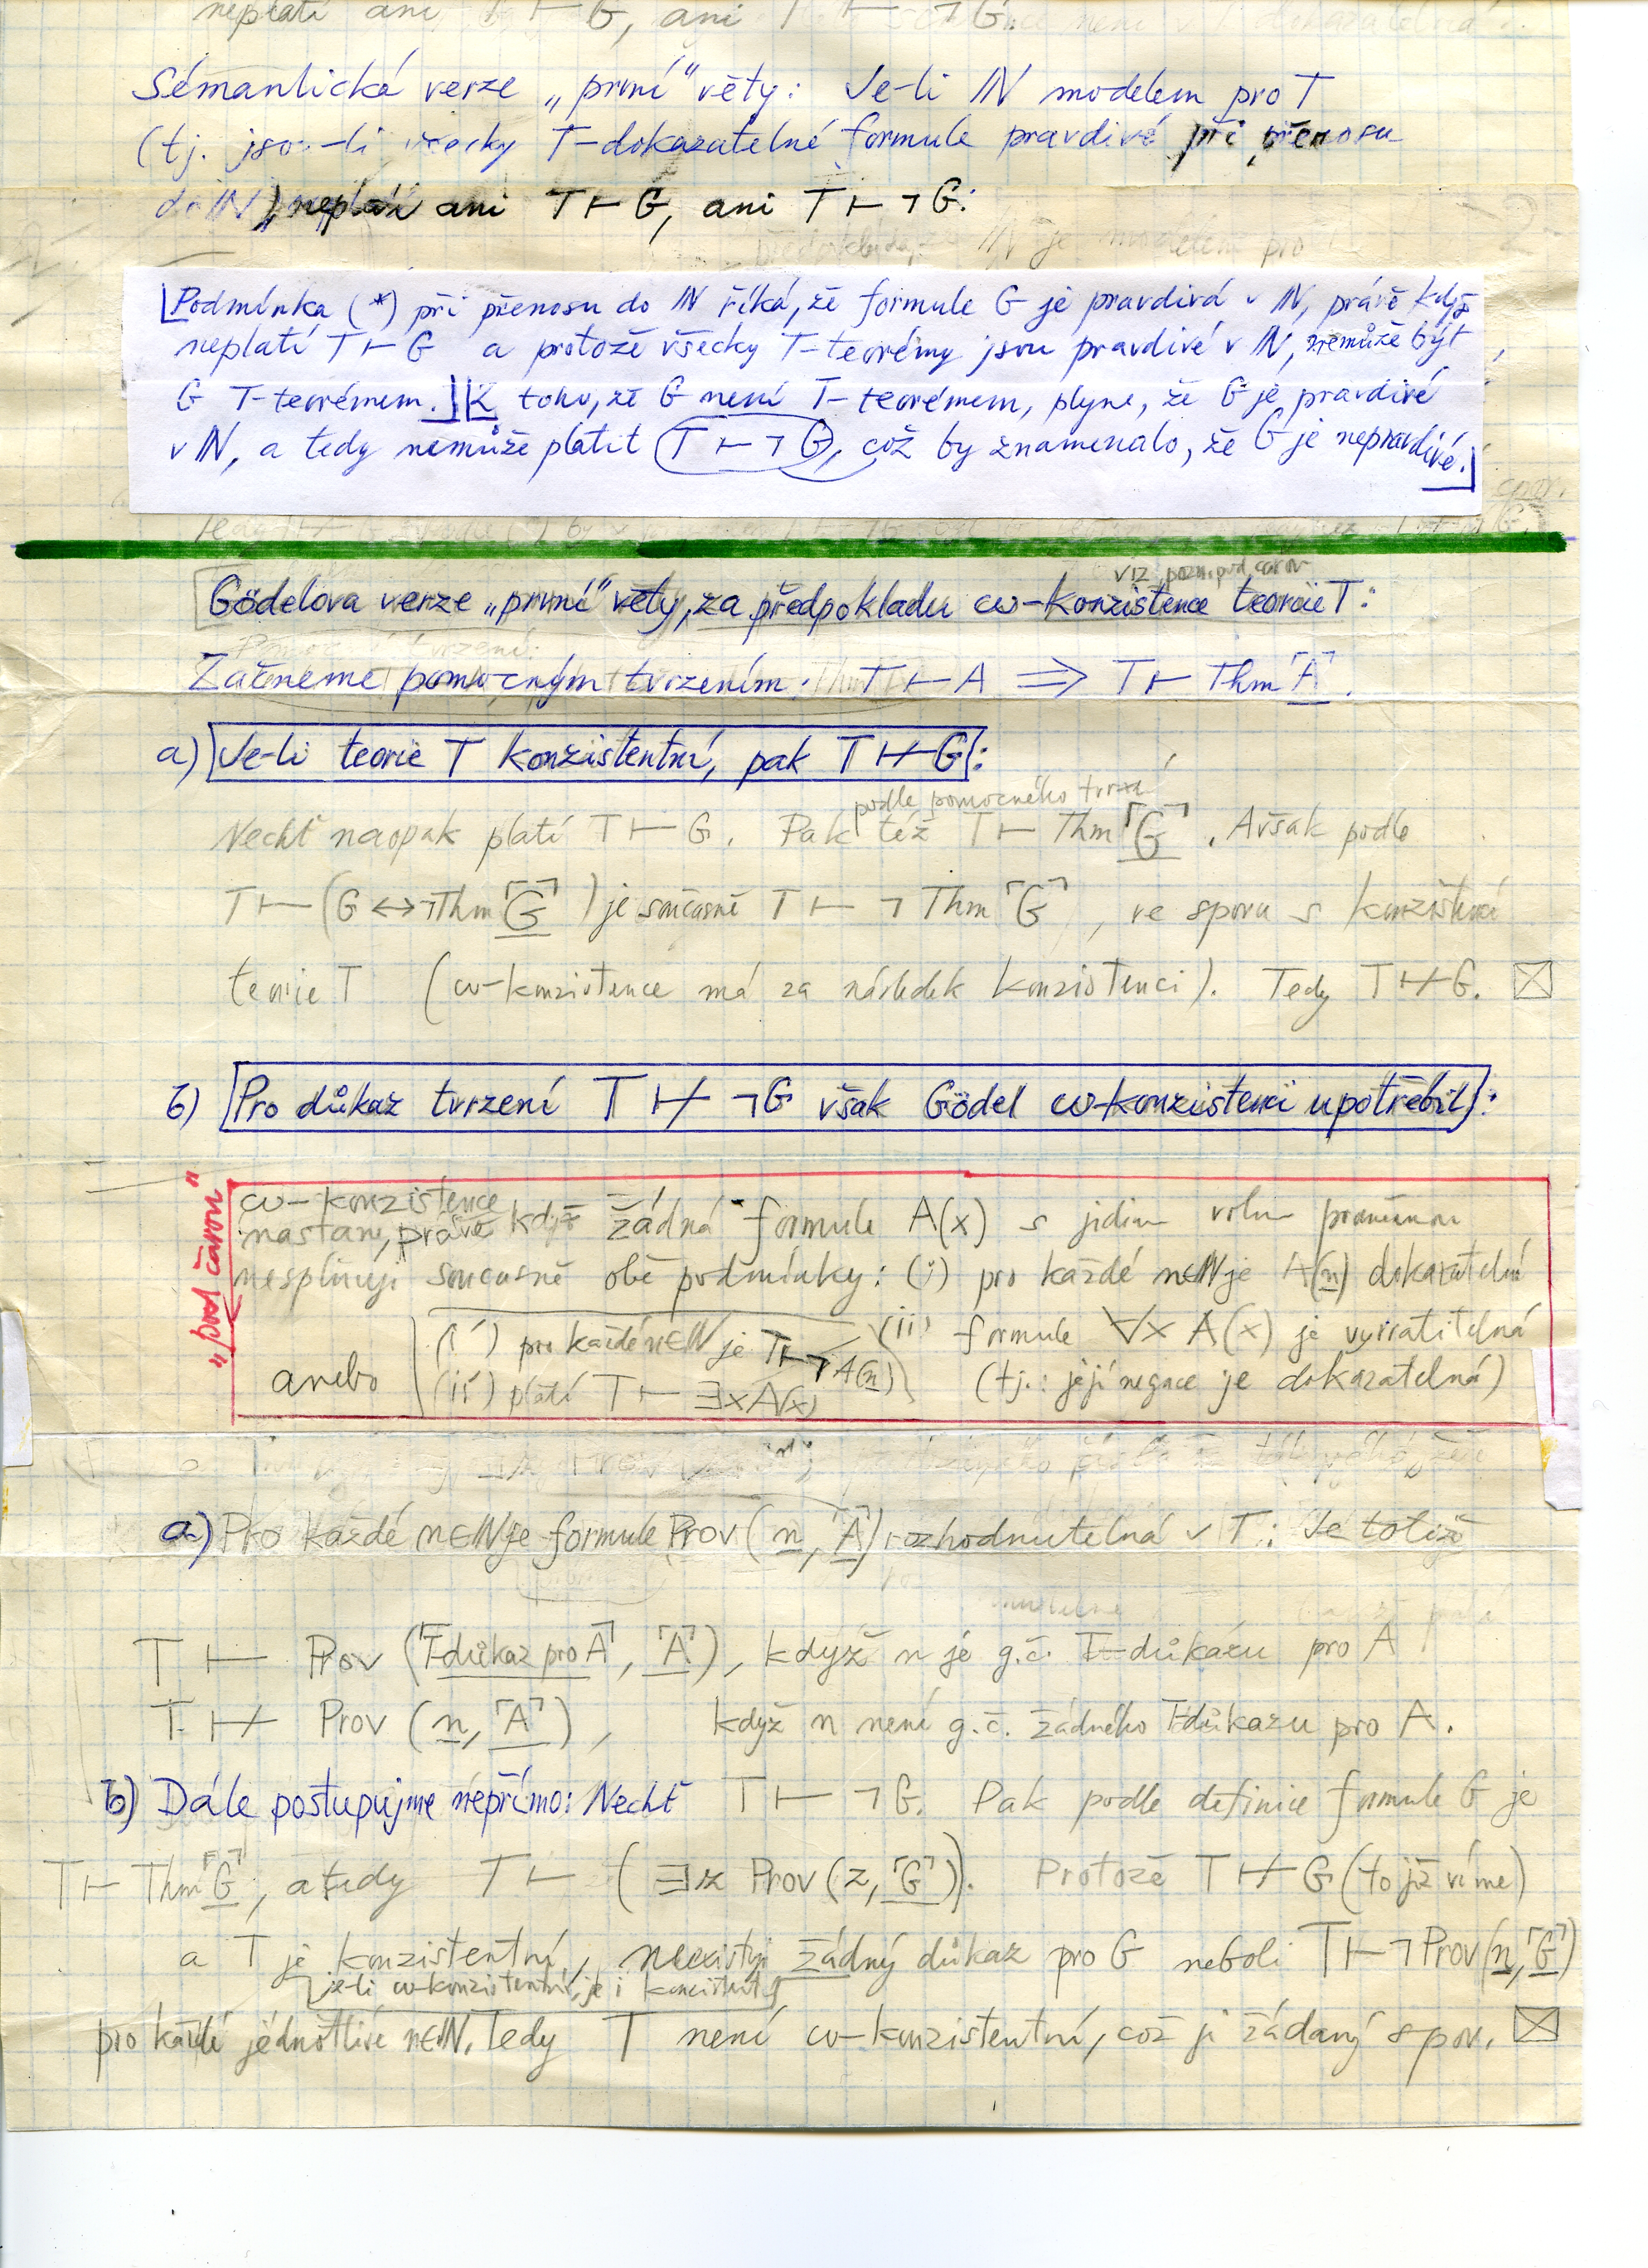 neplatí ani T ⊢ G, ani T ⊢ ¬G.
Sémantická verze „první“ věty: Je-li ℕ modelem pro T
(tj. jsou-li všecky T-dokazatelné formule pravdivé při přenosu
do ℕ), neplatí ani T ⊢ G, ani T ⊢ ¬G:
Podmínka (*) při přenosu do ℕ říká, že formule G je pravdivá v ℕ, právě když
neplatí T ⊢ G a protože všecky T-teorémy jsou pravdivé v ℕ, nemůže být
G T-teorémem. Z toho, že G není T-teorémem, plyne, že G je pravdivé
v ℕ, a tedy nemůže platit T ⊢ ¬G, což by znamenalo, že G je nepravdivé.
viz pozn. pod čarou
Gödelova verze „první“ věty, za předpokladu ω-konzistence teorie T:
Začneme pomocným tvrzením: T ⊢ A ⟹ T ⊢ Thm⌜A⌝.
a) Je-li teorie T konzistentní, pak T ⊬ G:
podle pomocného tvrzení
Nechť naopak platí T ⊢ G. Pak též T ⊢ Thm⌜G⌝. Avšak podle
T ⊢ (G ↔ ¬Thm⌜G⌝) je současně T ⊢ ¬Thm⌜G⌝, ve sporu s konzistencí
teorie T (ω-konzistence má za následek konzistenci). Tedy T ⊬ G. ☒
b) Pro důkaz tvrzení T ⊬ ¬G však Gödel ω-konzistenci upotřebil:
„pod čarou“
ω-konzistence
nastane, právě když žádná formule A(x) s jedinou volnou proměnnou
nesplňuje současně obě podmínky: (i) pro každé n∈ℕ je A(n) dokazatelná
(ii) formule ∀x A(x) je vyvratitelná
(tj.: její negace je dokazatelná)
anebo
(i') pro každé n∈ℕ je T ⊢ ¬A(n)
(ii') platí T ⊢ ∃x A(x)
a) Pro každé n∈ℕ je formule Prov(n, ⌜A⌝) rozhodnutelná v T: Je totiž
T ⊢ Prov(⌜T-důkaz pro A⌝, ⌜A⌝), když n je g.č. T-důkazu pro A
T ⊬ Prov(n, ⌜A⌝), když n není g.č. žádného T-důkazu pro A.
b) Dále postupujme nepřímo: Nechť T ⊢ ¬G. Pak podle definice formule G je
T ⊢ Thm⌜G⌝, a tedy T ⊢ (∃z Prov(z, ⌜G⌝)). Protože T ⊬ G (to již víme)
a T je konzistentní, neexistuje žádný důkaz pro G neboli T ⊢ ¬Prov(n, ⌜G⌝)
je-li ω-konzistentní, je i konzistentní
pro každé jednotlivé n∈ℕ. Tedy T není ω-konzistentní, což je žádaný spor. ☒